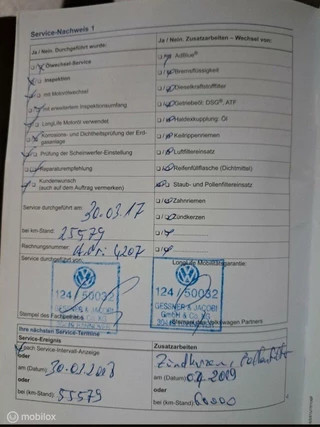 Service-Nachweis 1
Ja / Nein. Durchgeführt wurde:
Ja / Nein. Zusatzarbeiten – Wechsel von:
Ölwechsel-Service
AdBlue®
Inspektion
Bremsflüssigkeit
mit Motorölwechsel
Dieselkraftstofffilter
mit erweitertem Inspektionsumfang
Getriebeöl: DSG®, ATF
LongLife Motoröl verwendet
Haldexkupplung: Öl
Korrosions- und Dichtheitsprüfung der Erd-
gasanlage
Keilrippenriemen
Luftfiltereinsatz
Prüfung der Scheinwerfer-Einstellung
Reparaturempfehlung
Reifenfüllflasche (Dichtmittel)
Kundenwunsch
(auch auf dem Auftrag vermerken)
Staub- und Pollenfiltereinsatz
Zahnriemen
Service durchgeführt am: 30.03.17
Zündkerzen
bei km-Stand: 25579
Rechnungsnummer: 4207
Service durchgeführt von:
LongLife Mobilitätsgarantie:
124 / 50032
GESSNER & JACOBI
GmbH & Co. KG
124 / 50032
GESSNER & JACOBI
GmbH & Co. KG
Stempel des Fachbetriebs
Stempel des Volkswagen Partners
Ihre nächsten Service-Termine
Service-Ereignis
Zusatzarbeiten
nach Service-Intervall-Anzeige
Zündkerzen, Pollenfilter
oder
am (Datum): 30.03.2018
am (Datum): 04.2019
oder
oder
bei (km-Stand): 55579
bei (km-Stand): 60000
mobilox